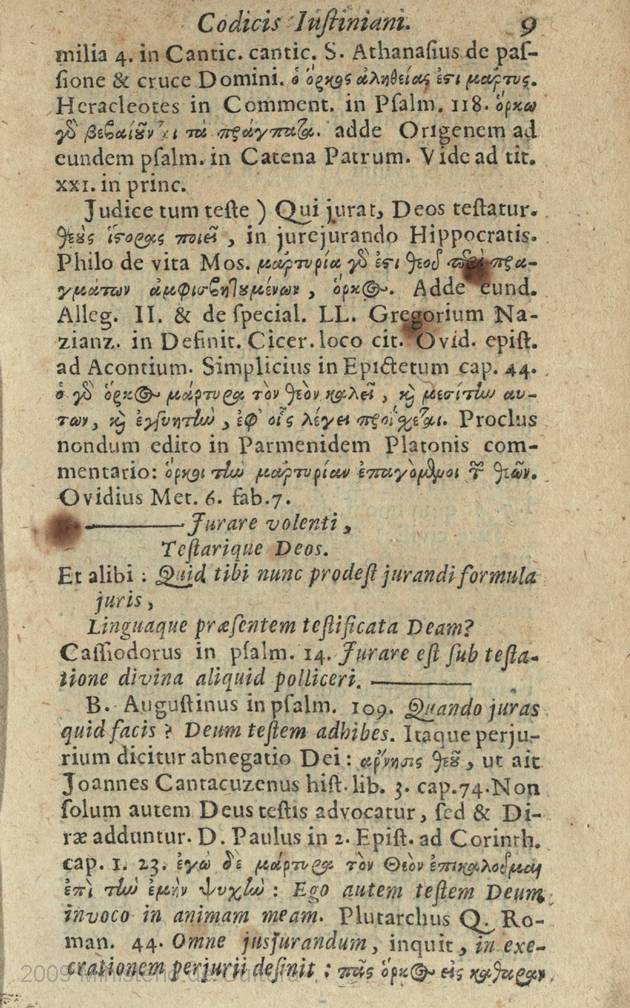 Codicis Iustiniani. 9
milia 4. in Cantic. cantic. S. Athanasius de pas-
sione & cruce Domini. ὁ ὅρκος ἀληθείας ἐστι μάρτυς.
Heracleotes in Comment. in Psalm. 118. ὅρκω
γὸ βεβαιοῦν τὰ πράγματα. adde Origenem ad
eundem psalm. in Catena Patrum. Vide ad tit.
XXI. in princ.
Judice tum teste) Qui jurat, Deos testatur.
θεοὺς ἵστορας ποιεῖ, in jurejurando Hippocratis.
Philo de vita Mos. μαρτυρία γὸ ἐστι θεοῦ πρα-
γμάτων ἀμφισβητουμένων, ὅρκος. Adde eund.
Alleg. II. & de special. LL. Gregorium Na-
zianz. in Definit. Cicer. loco cit. Ovid. epist.
ad Acontium. Simplicius in Epictetum cap. 44.
ὁ γὸ ὅρκος μάρτυρα τὸν θεὸν καλεῖ, καὶ μεσίτην αυ-
των, καὶ ἐγγυητὴν, ἐφ' οἷς λέγει προΐσχεται. Proclus
nondum edito in Parmenidem Platonis com-
mentario: ὅρκοι τὴν μαρτυρίαν ἐπαγόμενοι τ͂ θεῶν.
Ovidius Met. 6. fab. 7.
———Jurare volenti,
Testarique Deos.
Et alibi: Quid tibi nunc prodest jurandi formula
juris,
Linguaque præsentem testificata Deam?
Cassiodorus in psalm. 14. Jurare est sub testa-
tione divina aliquid polliceri.———
B. Augustinus in psalm. 109. Quando juras
quid facis? Deum testem adhibes. Itaque perju-
rium dicitur abnegatio Dei: ἄρνησις θεοῦ, ut ait
Joannes Cantacuzenus hist. lib. 3. cap. 74. Non
solum autem Deus testis advocatur, sed & Di-
ræ adduntur. D. Paulus in 2. Epist. ad Corinth.
cap. 1. 23. ἐγὼ δὲ μάρτυρα τὸν Θεὸν ἐπικαλοῦμαι
ἐπὶ τὴν ἐμὴν ψυχὴν: Ego autem testem Deum
invoco in animam meam. Plutarchus Q. Ro-
man. 44. Omne jusjurandum, inquit, in exe-
crationem perjurii definit: πᾶς ὅρκος εἰς κατάραν
2009 Ministerio de Cultura